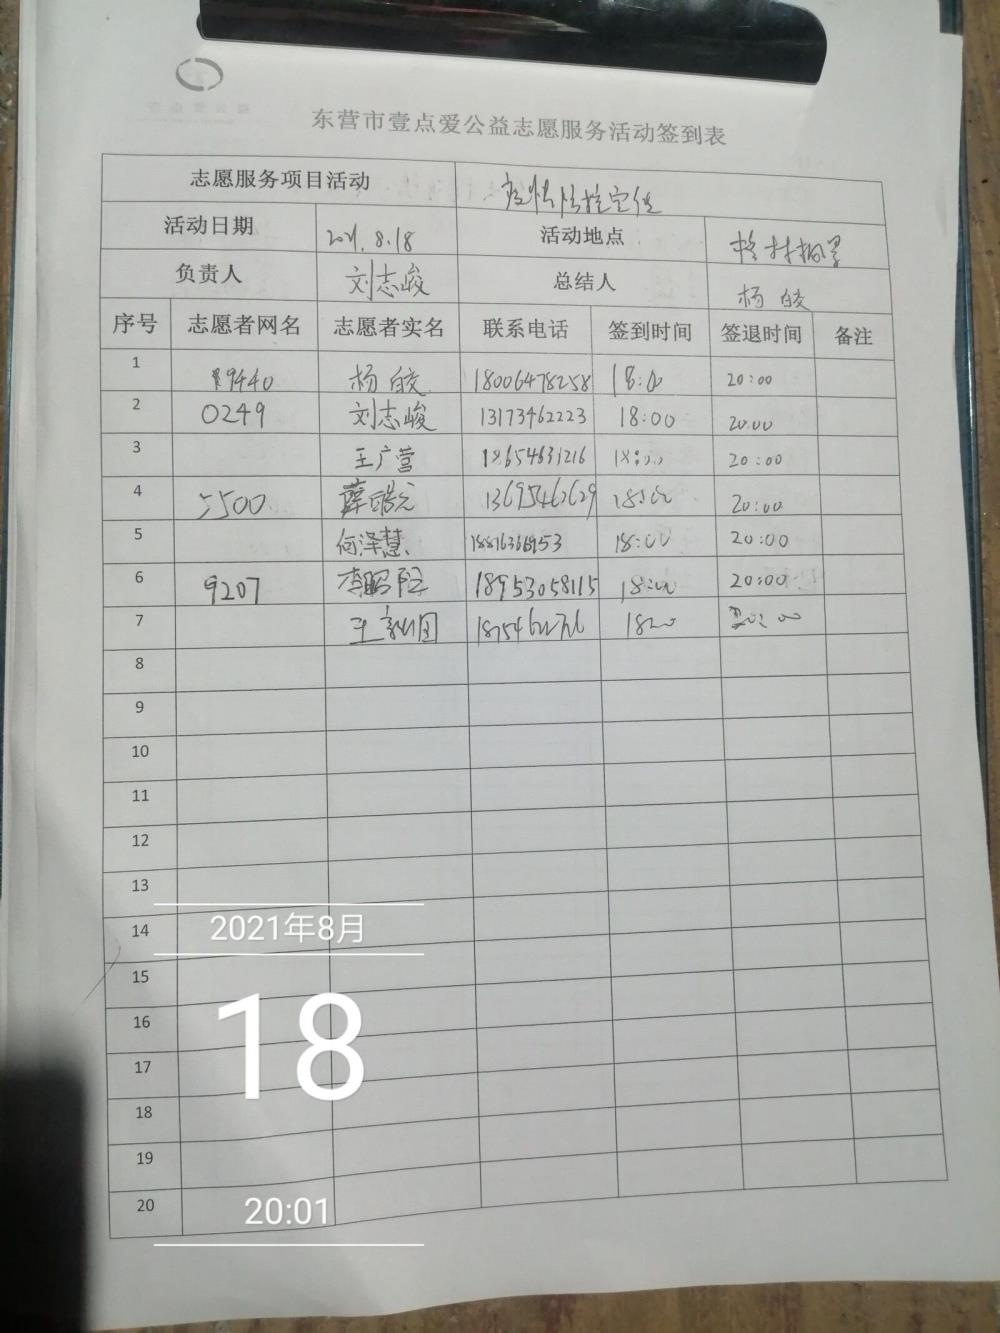 东营市壹点爱公益志愿服务活动签到表
志愿服务项目活动
活动日期 2021.8.18 活动地点
负责人 刘志峻 总结人 杨皎
序号 志愿者网名 志愿者实名 联系电话 签到时间 签退时间 备注
1 9440 杨皎 18006478258 20:00
2 0249 刘志峻 13173462223 18:00 20:00
3 王广营 18654631216 18:00 20:00
4 5500 13695462629 18:00 20:00
5 何泽慧 18:00 20:00
6 9207 18953058115 18:00 20:00
7
8
9
10
11
12
13
14
15
16
17
18
19
20
2021年8月
18
20:01